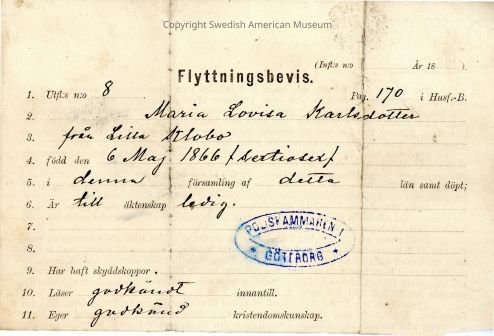 Copyright Swedish American Museum
(Infl:s n:o År 18 ).
Flyttningsbevis.
1. Utfl:s n:o 8 Pag. 170 i Husf.-B.
2. Maria Lovisa Karlsdotter
3. från Lilla Klobo
4. född den 6 Maj 1866 /sextiosex/
5. i denna församling af detta län samt döpt;
6. Är till äktenskap ledig.
7.
8.
POLISKAMMAREN I
* GÖTEBORG *
9. Har haft skyddskoppor.
10. Läser godkändt innantill.
11. Eger godkänd kristendomskunskap.